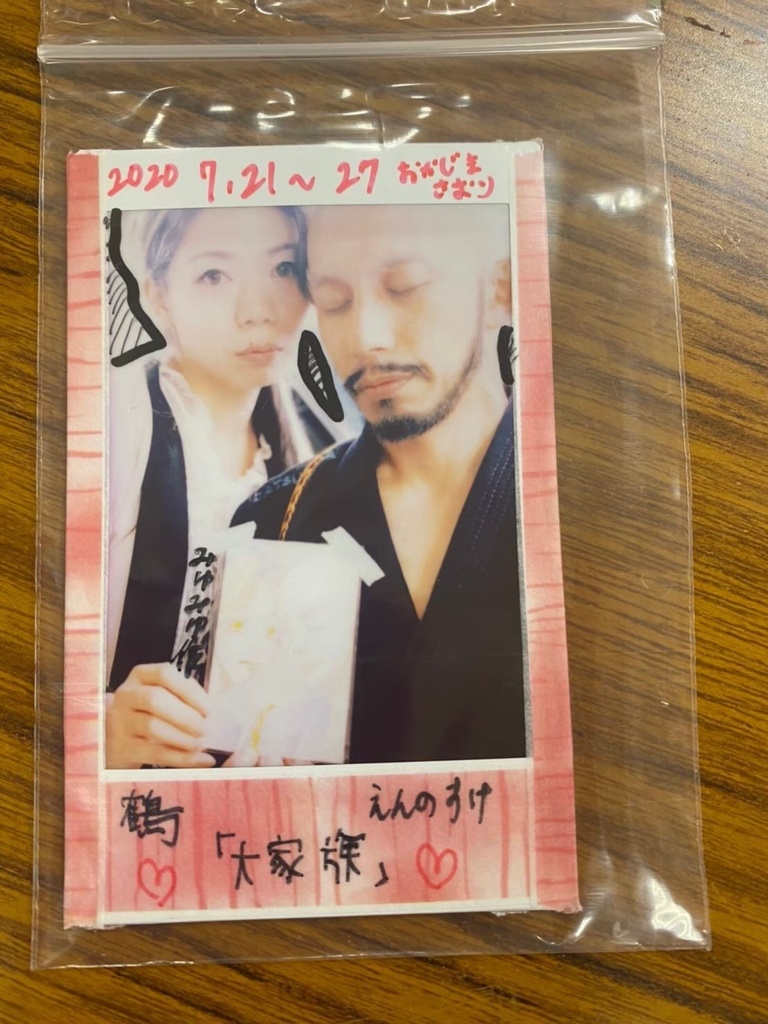 2020 7.21～27 おかじま
さおり
みゆみゆ
鶴 えんのすけ
「大家族」